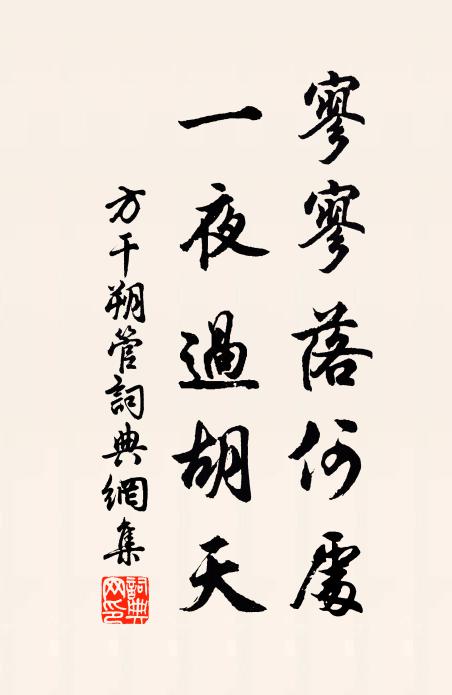 寥寥落何處
一夜過胡天
方干朔管詞典網集
詞典網印